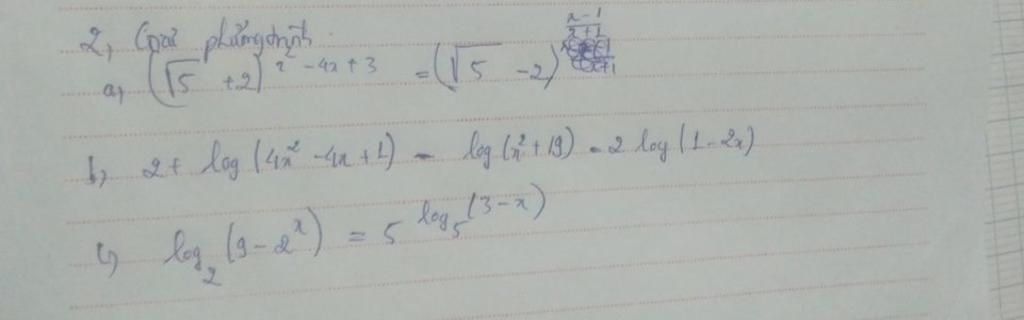 2, Giải phương trình.
a, (√5 + 2)^{x² - 4x + 3} = (√5 - 2)^{\frac{x-1}{x+1}}
b, 2 + log(4x² - 4x + 1) - log(x² + 19) = 2 log(1 - 2x)
c, log₂(9 - 2^x) = 5^{log₅(3 - x)}